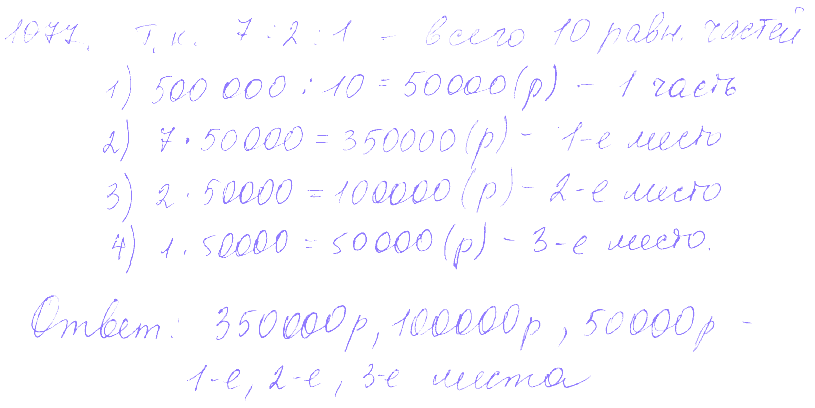 1077. Т.к. 7:2:1 - всего 10 равн. частей
1) 500 000 : 10 = 50000(р) - 1 часть
2) 7 · 50000 = 350000(р) - 1-е место
3) 2 · 50000 = 100000(р) - 2-е место
4) 1 · 50000 = 50000(р) - 3-е место.
Ответ: 350000р, 100000р, 50000р -
1-е, 2-е, 3-е места